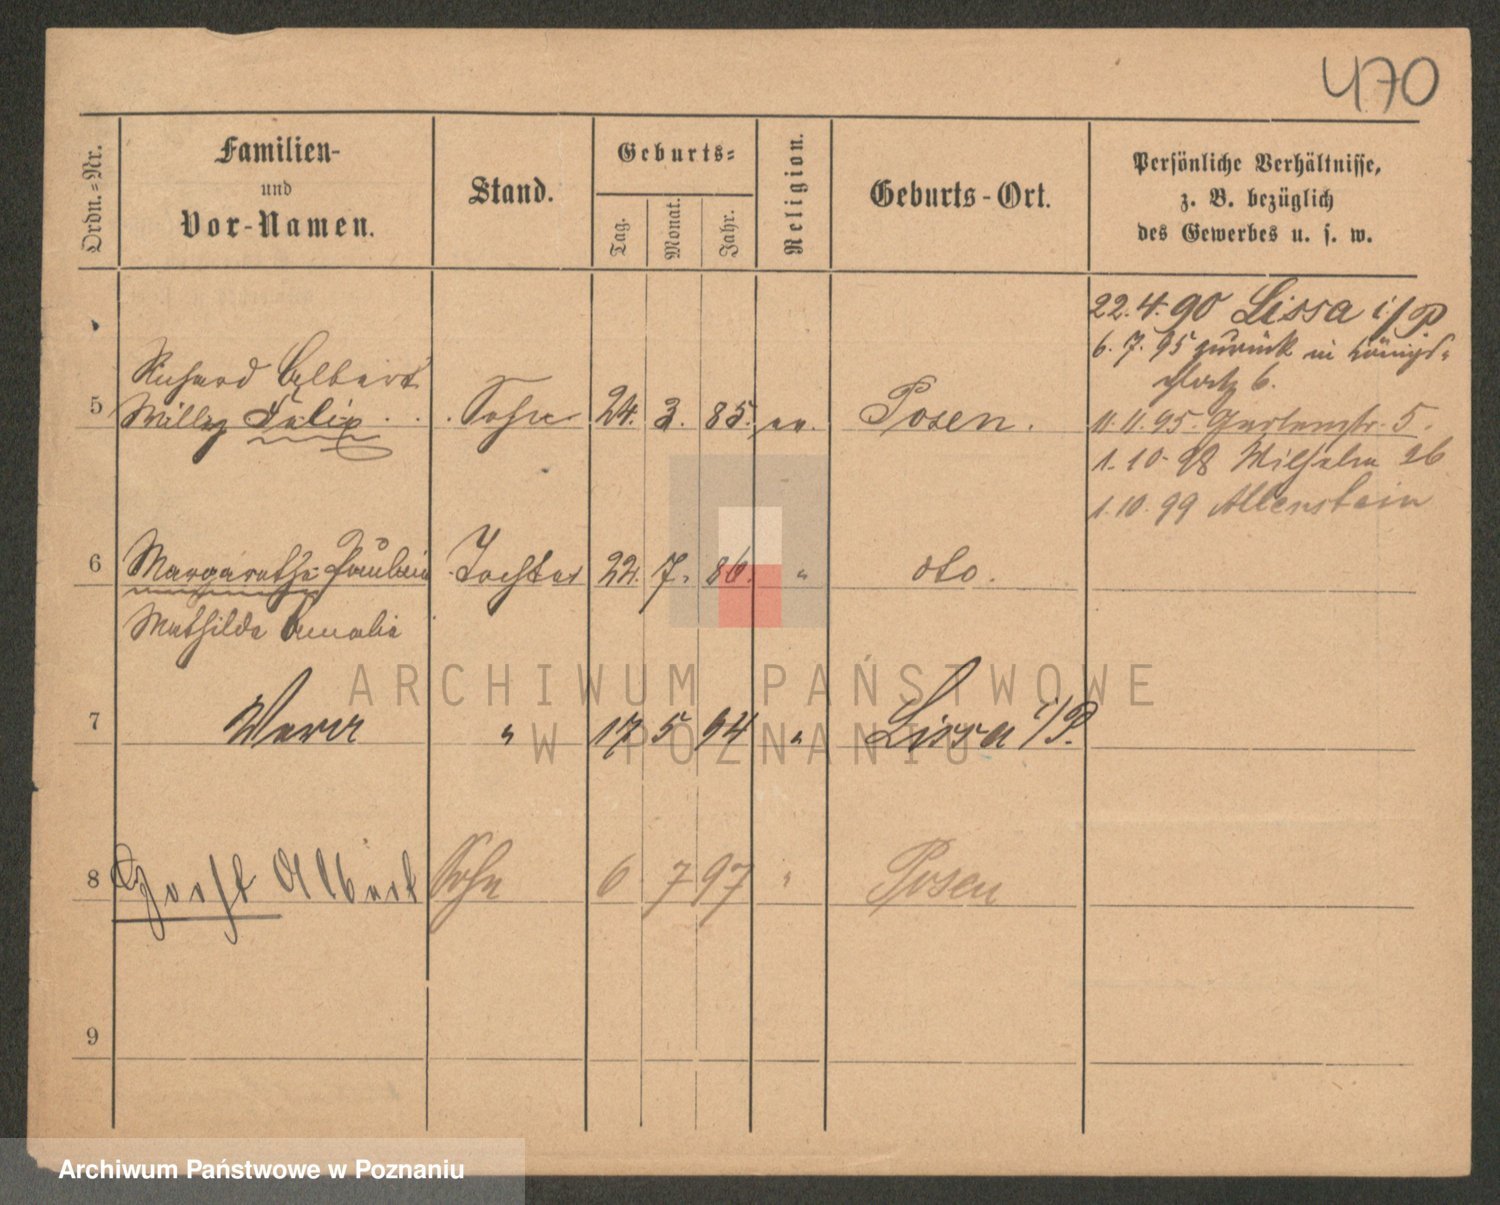 470
Ordn.-Nr.
Familien-
und
Vor-Namen.
Stand.
Geburts-
Tag.
Monat.
Jahr.
Religion.
Geburts-Ort.
Persönliche Verhältnisse,
z. B. bezüglich
des Gewerbes u. s. w.
22.4.90 Lissa i/P
6.7.95 zurück in Königs-
platz 6.
Richard Albert
5 Willy Felix . . . Sohn 24. 3. 85. ev. Posen. 11.11.95. Gartenstr. 5.
1.10.98 Wilhelm 26
1.10.99 Allenstein
6 Margarethe Pauline Tochter 22. 7. 86. " dto.
Mathilde Amalie
7 Vera " 17 5 94 " Lissa i/P.
8 Horst Albert Sohn 6 7 97 " Posen
9
ARCHIWUM PAŃSTWOWE
W POZNANIU
Archiwum Państwowe w Poznaniu